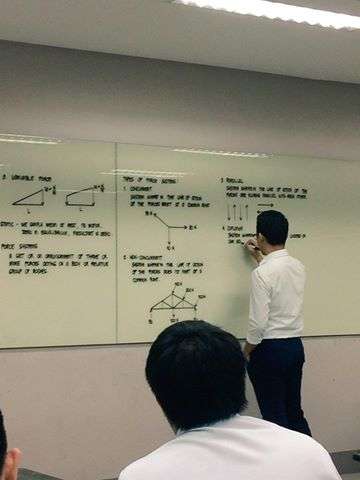 2. VARIABLE FORCE
L
L
STATIC - WE SIMPLY MEANS AT REST, NO MOTION,
ZERO, IN EQUILIBRIUM, RESULTANT IS ZERO.
FORCE SYSTEMS
A SET OR AN ARRANGEMENT OF THREE OR
MORE FORCES ACTING IN A BODY OR RELATIVE
GROUP OF BODIES.
TYPES OF FORCE SYSTEMS:
1. CONCURRENT
SYSTEM WHEREIN THE LINE OF ACTION OF
THE FORCES MEET AT A COMMON POINT
2. NON-CONCURRENT
SYSTEM WHEREIN THE LINE OF ACTION
OF THE FORCES DOES NOT MEET AT A
COMMON POINT.
3. PARALLEL
SYSTEM WHEREIN THE LINE OF ACTION OF
THE FORCES ARE ALWAYS PARALLEL WITH EACH OTHER.
4. COPLANAR
SYSTEM WHEREIN